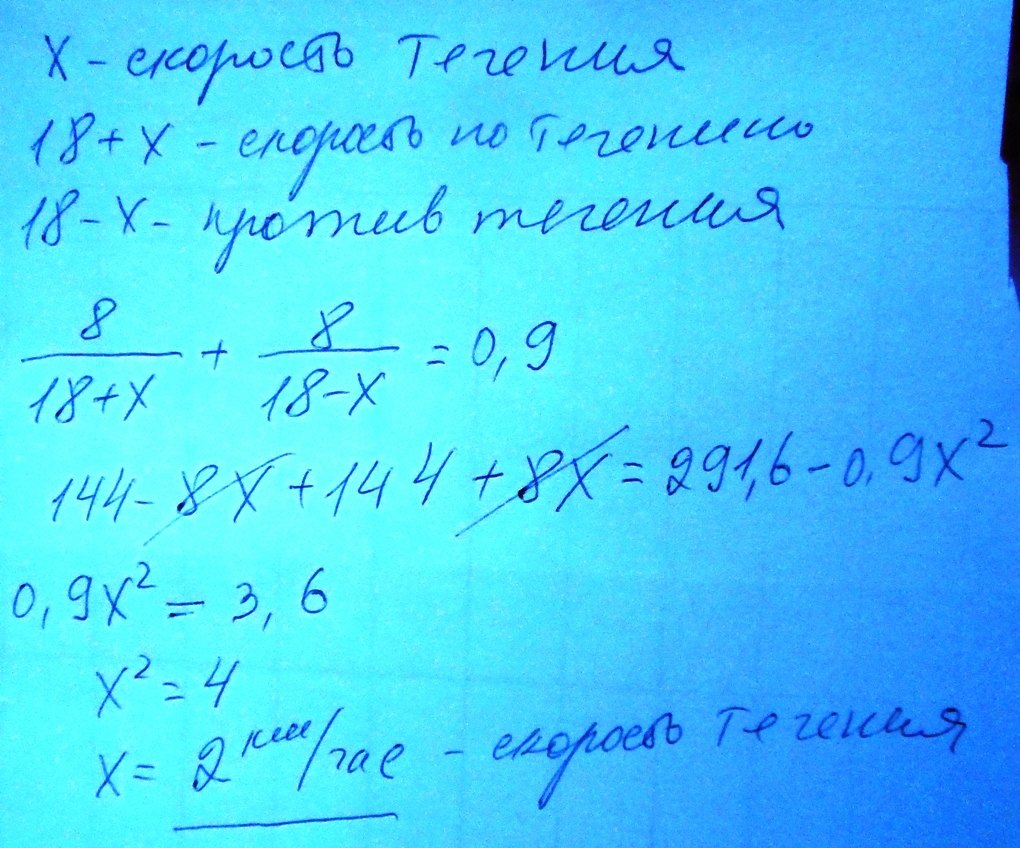 X - скорость Течения
18+X - скорость по Течению
18-X - против течения
8/(18+X) + 8/(18-X) = 0,9
144-8X+144+8X=291,6-0,9X²
0,9X² = 3,6
X²=4
X= 2 км/час - скорость Течения